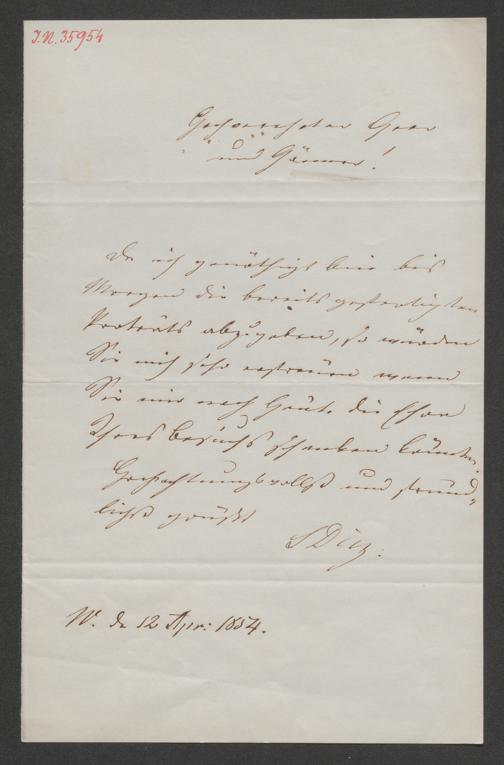 I.N. 35954
Hochverehrter Herr
und Gönner!
Da ich genöthigt bin bis
Morgen die bereits gefertigten
Porträts abzugeben, so würden
Sie mich sehr erfreuen wenn
Sie mir noch Heute die Ehre
Ihres Besuchs schenken könnten.
Hochachtungsvollst und freund-
lichst grüßt
SDiez.
W. de 12 Apr: 1854.